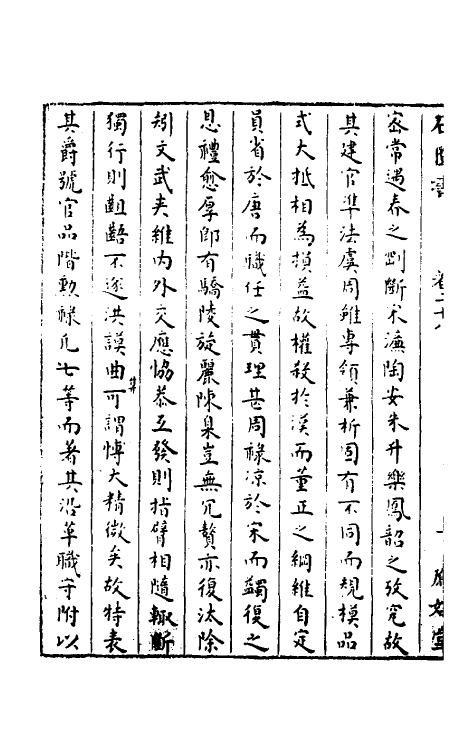 石匱書 卷二十八
密常遇春之剛斷宋濂陶安朱升樂鳳韶之攷究故
其建官準法虞周雖專領兼析固有不同而規模品
式大抵相為損益故權殺於漢而董正之綱維自定
員省於唐而職任之貫理甚周祿凉於宋而蠲復之
恩禮愈厚即有驕陵旋麗陳臬豈無冗贅亦復汰除
矧文武夹維内外交應恊恭互發則指臂相隨輙斷
獨行則齟齬不遂洪謨曲筭可謂愽大精微矣故特表
其爵號官品階勲祿凢七等而著其沿革職守附以